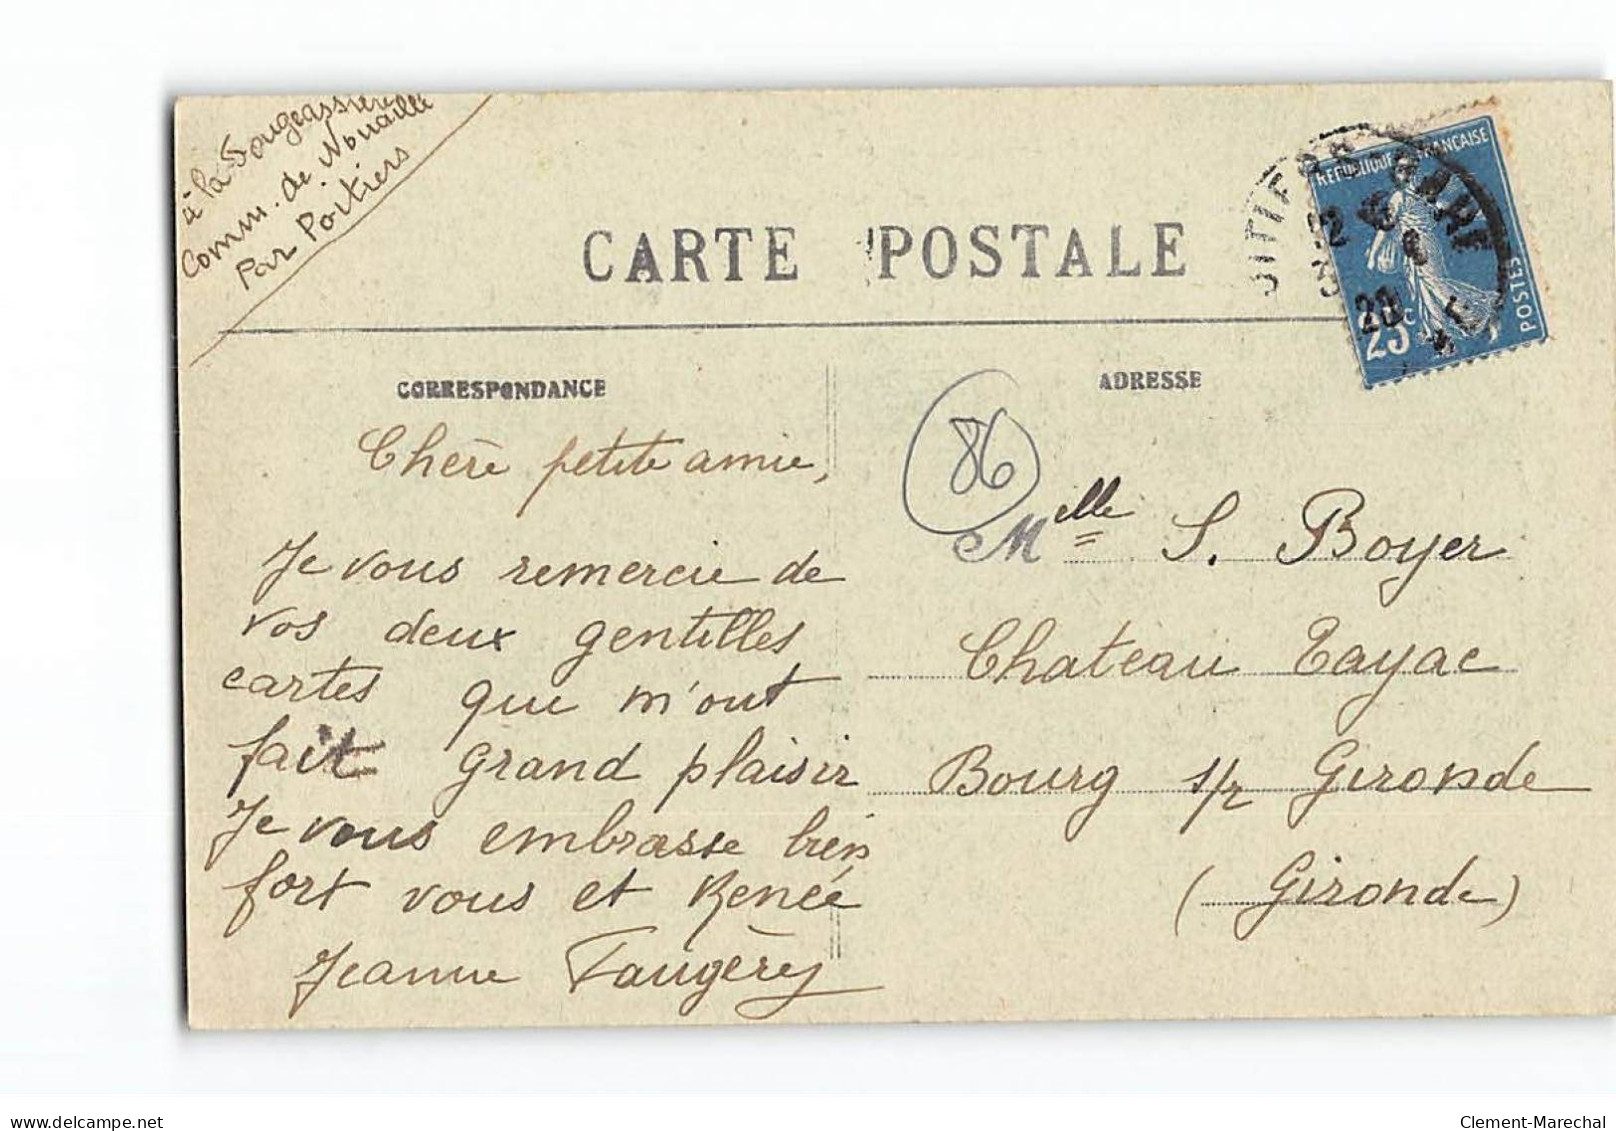 à la Fougeassière
Comm. de Nouaillé
Par Poitiers
CARTE POSTALE
REPUBLIQUE FRANÇAISE
POSTES
25c
GARE
20
CORRESPONDANCE
ADRESSE
86
Chère petite amie,
Je vous remercie de
vos deux gentilles
cartes que m'ont
fait grand plaisir
Je vous embrasse bien
fort vous et Renée
Jeanne Faugèry
Melle S. Boyer
Chateau Tayac
Bourg s/r Gironde
(Gironde)
delcampe.net
Clement-Marechal